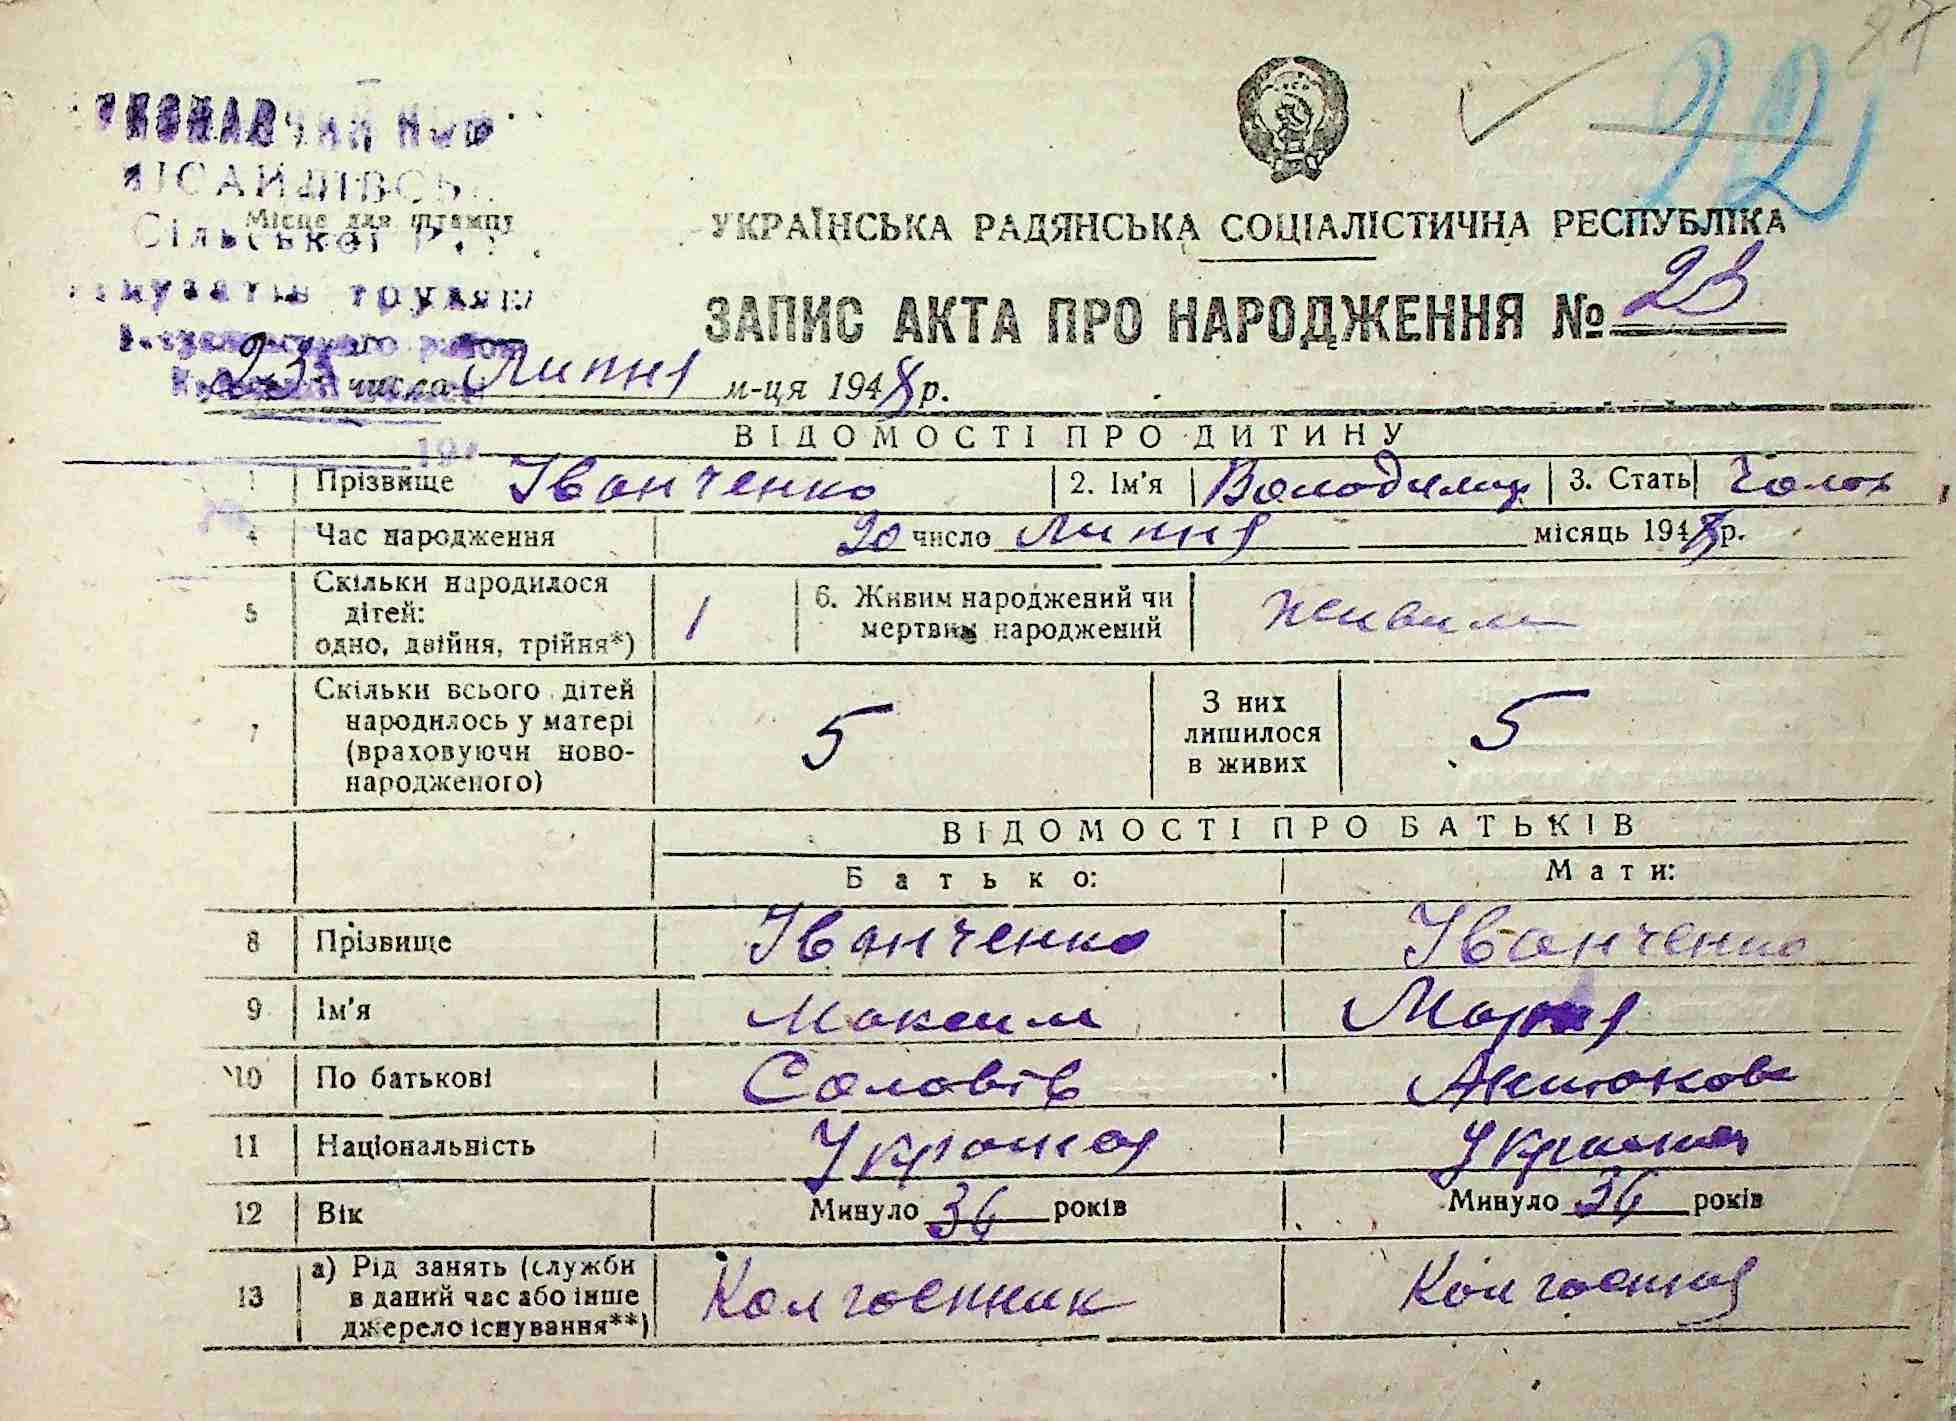 87
22
Місце для штампу
Сільської
УКРАЇНСЬКА РАДЯНСЬКА СОЦІАЛІСТИЧНА РЕСПУБЛІКА
ЗАПИС АКТА ПРО НАРОДЖЕННЯ № 23
23 числа Липня м-ця 1948 р.
ВІДОМОСТІ ПРО ДИТИНУ
1 Прізвище Іванченко 2. Ім'я Володимир 3. Стать Чолов
4 Час народження 20 число Липня місяць 1948 р.
5 Скільки народилося дітей: одно, двійня, трійня*) 1 6. Живим народжений чи мертвим народжений живим
7 Скільки всього дітей народилось у матері (враховуючи ново-народженого) 5 З них лишилося в живих 5
ВІДОМОСТІ ПРО БАТЬКІВ
Батько: Мати:
8 Прізвище Іванченко Іванченко
9 Ім'я Максим Мария
10 По батькові Соловів
11 Національність
12 Вік Минуло 36 років Минуло 36 років
13 а) Рід занять (служби в даний час або інше джерело існування**) Колгоспник Колгоспния